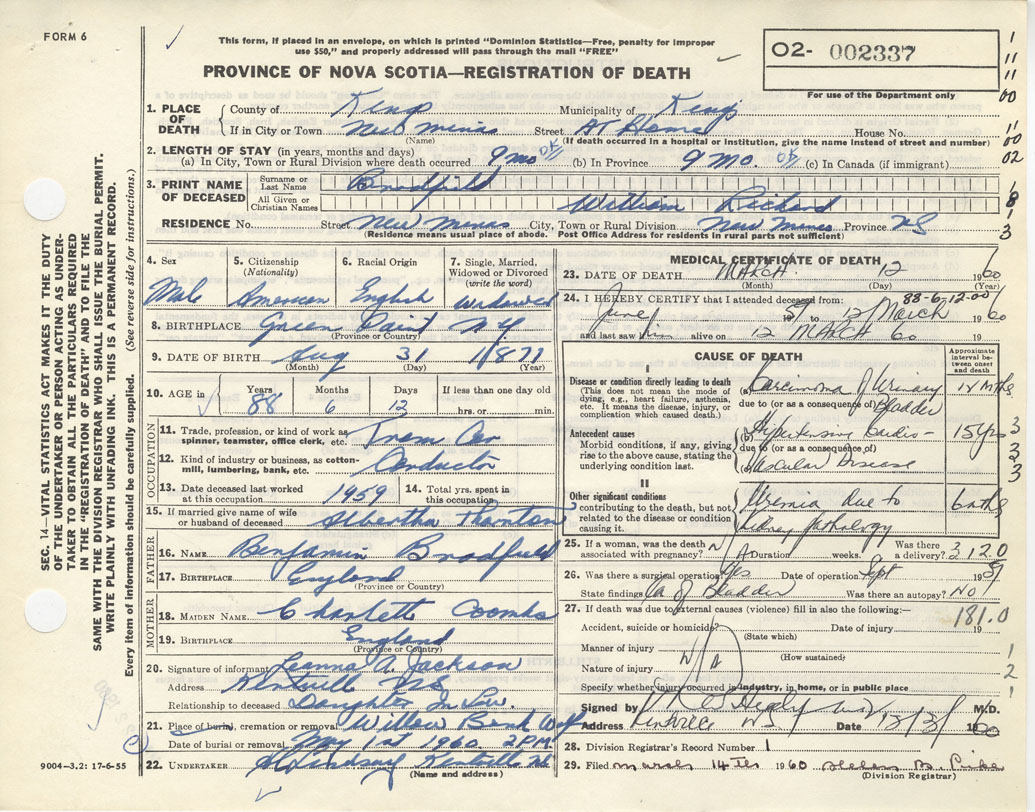 FORM 6
This form, if placed in an envelope, on which is printed "Dominion Statistics—Free, penalty for improper
use $50," and properly addressed will pass through the mail "FREE"
02- 002337
For use of the Department only
PROVINCE OF NOVA SCOTIA—REGISTRATION OF DEATH
1. PLACE OF DEATH
County of Kings Municipality of Kings
If in City or Town New Minas Street At Home House No.
(Name) (If death occurred in a hospital or institution, give the name instead of street and number)
2. LENGTH OF STAY (in years, months and days)
(a) In City, Town or Rural Division where death occurred 9 mo (b) In Province 9 mo. (c) In Canada (if immigrant)
3. PRINT NAME OF DECEASED
Surname or Last Name Bradfield
All Given or Christian Names William Richard
RESIDENCE No. Street New Minas City, Town or Rural Division New Minas Province NS
(Residence means usual place of abode. Post Office Address for residents in rural parts not sufficient)
SEC. 14—VITAL STATISTICS ACT MAKES IT THE DUTY
OF THE UNDERTAKER OR PERSON ACTING AS UNDER-
TAKER TO OBTAIN ALL THE PARTICULARS REQUIRED
IN THE "REGISTRATION OF DEATH" AND TO FILE THE
SAME WITH THE DIVISION REGISTRAR WHO SHALL ISSUE THE BURIAL PERMIT.
WRITE PLAINLY WITH UNFADING INK. THIS IS A PERMANENT RECORD.
Every item of information should be carefully supplied. (See reverse side for instructions.)
4. Sex 5. Citizenship (Nationality) 6. Racial Origin 7. Single, Married, Widowed or Divorced (write the word)
Male American English Widowed
8. BIRTHPLACE Green Point N.Y.
(Province or Country)
9. DATE OF BIRTH Aug 31 1871
(Month) (Day) (Year)
10. AGE in Years 88 Months 6 Days 12 If less than one day old hrs. or min.
OCCUPATION
11. Trade, profession, or kind of work as spinner, teamster, office clerk, etc. Tram Car
12. Kind of industry or business, as cotton-mill, lumbering, bank, etc. Conductor
13. Date deceased last worked at this occupation 1959 14. Total yrs. spent in this occupation
15. If married give name of wife or husband of deceased Albertha Thornton
FATHER
16. NAME Benjamin Bradfield
17. BIRTHPLACE England
(Province or Country)
MOTHER
18. MAIDEN NAME Charlett Coombs
19. BIRTHPLACE England
(Province or Country)
20. Signature of informant Leanna A. Jackson
Address Kentville NS
Relationship to deceased Daughter In Law
21. Place of burial, cremation or removal Willow Bank Wolf
Date of burial or removal May 1st 1960 2 P.M.
22. UNDERTAKER Lindsay Kentville
(Name and address)
9004—3.2: 17-6-55
MEDICAL CERTIFICATE OF DEATH
23. DATE OF DEATH MARCH 12 1960
(Month) (Day) (Year)
88-6-12-00
24. I HEREBY CERTIFY that I attended deceased from:
June 1959 to 12 March 1960
and last saw him alive on 12 MARCH 60 19
CAUSE OF DEATH
Approximate interval between onset and death
I
Disease or condition directly leading to death
(This does not mean the mode of dying, e.g., heart failure, asthenia, etc. It means the disease, injury, or complication which caused death.)
(a) Carcinoma of Urinary 18 mths
due to (or as a consequence of) Bladder
Antecedent causes
Morbid conditions, if any, giving rise to the above cause, stating the underlying condition last.
(b) Hypertensive Cardio- 15 yrs
due to (or as a consequence of)
Vascular Disease
II
Other significant conditions
contributing to the death, but not related to the disease or condition causing it.
Uremia due to 6 mths
kidney pathology
25. If a woman, was the death associated with pregnancy? N/A Duration weeks. Was there a delivery?
3120
26. Was there a surgical operation? Yes Date of operation Sept 1959
State findings Ca of Bladder Was there an autopsy? NO
27. If death was due to external causes (violence) fill in also the following:—
181.0
Accident, suicide or homicide? Date of injury 19
(State which)
Manner of injury N/A
(How sustained)
Nature of injury
Specify whether injury occurred in industry, in home, or in public place
Signed by M.D.
Address Kentville NS Date 13/3/ 1960
28. Division Registrar's Record Number 1
29. Filed March 14th 1960 Helen M. Pike
(Division Registrar)
1
11
11
00
11
00
02
1
8
1
3
3
3
3
3
1
2
1